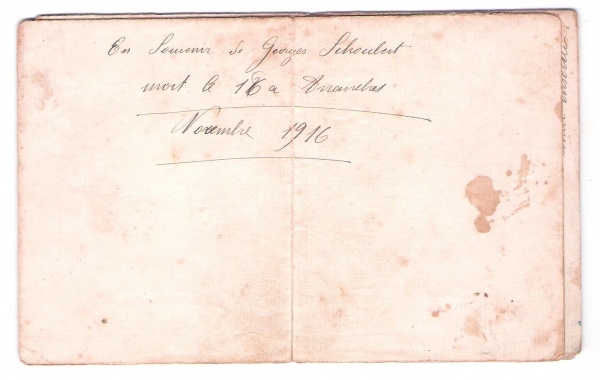 En Souvenir de Georges Schoubert
mort le 18 a Avranches
Novembre 1916